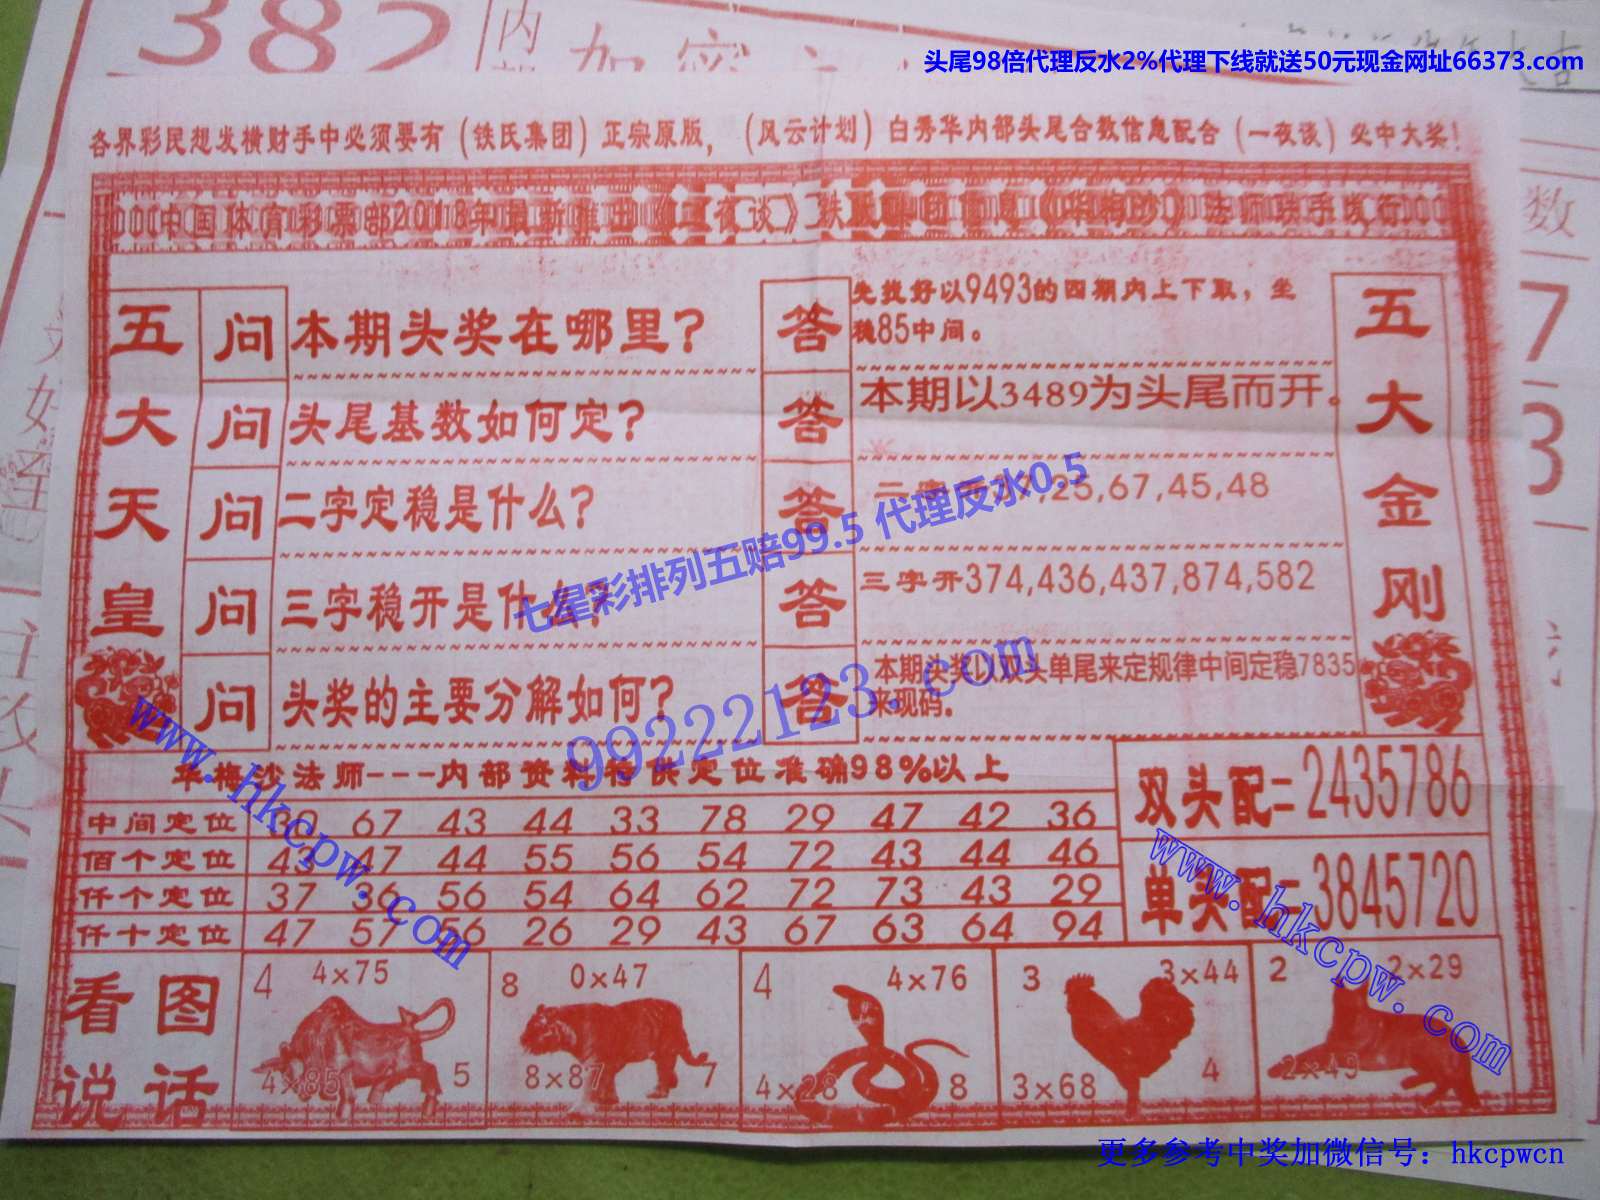 385
内
加密
头尾98倍代理反水2%代理下线就送50元现金网址66373.com
各界彩民想发横财手中必须要有（铁氏集团）正宗原版，（风云计划）白秀华内部头尾合数信息配合（一夜谈）必中大奖！
中国体育彩票部2018年最新推出《一夜谈》铁氏集团信息《华梅沙》法师联手发行
五大天皇
问 本期头奖在哪里？
答 先找好以9493的四期内上下取，坐
稳85中间。
问 头尾基数如何定？
答 本期以3489为头尾而开。
问 二字定稳是什么？
答 二字开37,25,67,45,48
问 三字稳开是什么？
答 三字开374,436,437,874,582
问 头奖的主要分解如何？
答 本期头奖以双头单尾来定规律中间定稳7835
来现码.
五大金刚
七星彩排列五赔99.5 代理反水0.5
99222123.com
华梅沙法师---内部资料特供定位准确98%以上
中间定位 30 67 43 44 33 78 29 47 42 36
佰个定位 43 47 44 55 56 54 72 43 44 46
仟个定位 37 36 56 54 64 62 72 73 43 29
仟十定位 47 57 56 26 29 43 67 63 64 94
双头配二 2435786
单头配二 3845720
www.hkcpw.com
www.hkcpw.com
看图
说话
4 4×75
4×85 5
8 0×47
8×87 7
4 4×76
4×28 8
3 3×44
3×68 4
2 2×29
2×49
数
7
3
更多参考中奖加微信号：hkcpwcn